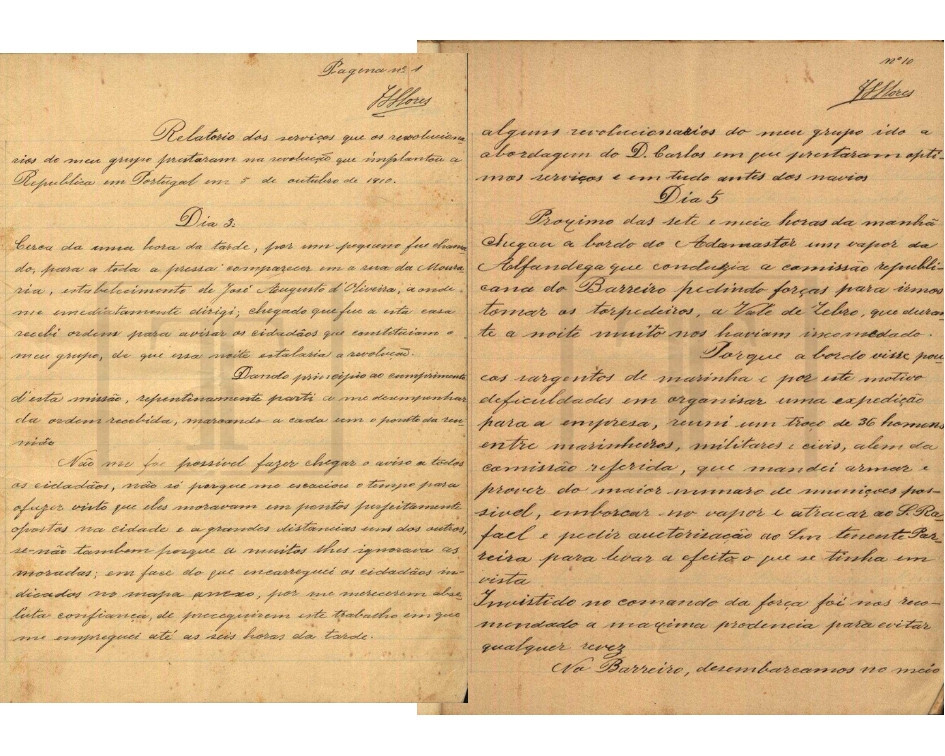 Pagena nº 1
Relatorio dos serviços que os revoluciona
rios do meu grupo prestaram na revolução que implantou a
Republica em Portugal em 5 de outubro de 1910.
Dia 3.
Cerca da uma hora da tarde, por um pequeno fui chama
do, para a toda a pressa comparecer em a rua da Moura
ria, estabelecimento de José Augusto d'Oliveira, aonde
me emediatamente dirigi; chegado que fui a esta casa
recebi ordens para avisar os cidadãos que constituiam o
meu grupo, de que essa noite estalaria a revolução.
Dando principio ao cumprimento
d'esta missão, repentinamente parti a me desempenhar
da ordem recebida, marcando a cada um o ponto da reu-
nião
Não me foi possivel fazer chegar o aviso a todos
os cidadãos, não só porque me escaciou o tempo para
o fazer visto que eles moravam em pontos perfeitamente
opostos na cidade e a grandes distancias uns dos outros,
se-não tambem porque a muitos lhes ignorava as
moradas; em face do que encarreguei os cidadãos in-
dicados no mapa anexo, por me merecerem abso
luta confiança, de proceguirem este trabalho em que
me empreguei até as seis horas da tarde.
nº 10
alguns revolucionarios do meu grupo ido a
abordagem do D. Carlos em que prestaram opti
mos serviços e em tudo antes dos navios
Dia 5
Proximo das sete e meia horas da manhã
chegou a bordo do Adamastor um vapor da
Alfandega que conduzia a comissão republi-
cana do Barreiro pedindo forças para irmos
tomar os torpedeiros, a Vale de Zebro, que duran
te a noite muito nos haviam incomodado.
Porque a bordo visse pou
cos sargentos de marinha e por este motivo
deficuldades em organisar uma expedição
para a empresa, reuni um troço de 36 homens
entre marinheiros, militares e civis, alem da
comissão referida, que mandei armar e
prover do maior numaro de municões pos-
sivel, embarcar no vapor e atracar ao S. Ra-
fael e pedir auctorisação ao Snr tenente Par-
reira para levar a efeito o que se tinha em
vista
Invistido no comando da força foi nos reco-
mendado a maxima prodencia para evitar
qualquer revez
No Barreiro, desembarcamos no meio